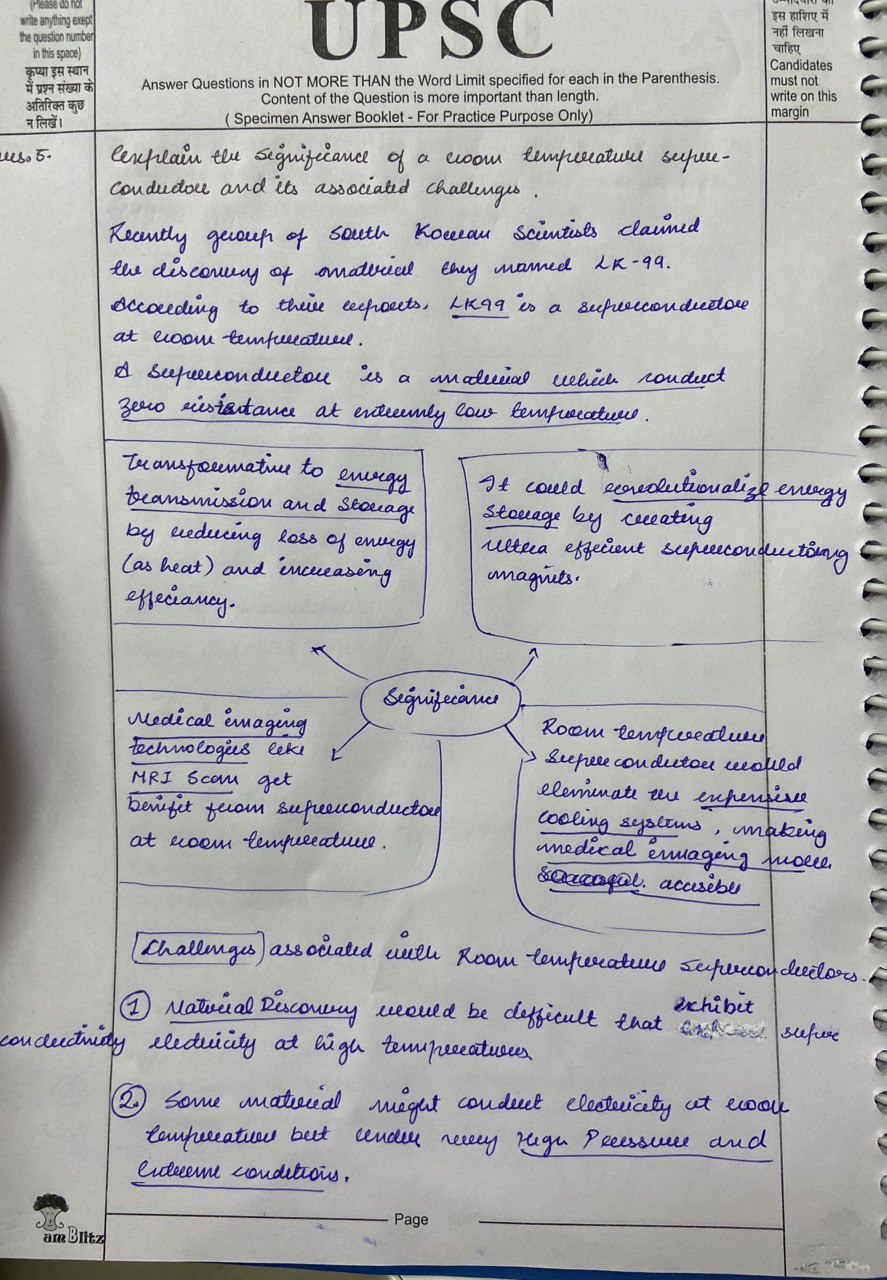 (Please do not
write anything exept
the question number
in this space)
कृप्या इस स्थान
में प्रश्न संख्या के
अतिरिक्त कुछ
न लिखें।
UPSC
Answer Questions in NOT MORE THAN the Word Limit specified for each in the Parenthesis.
Content of the Question is more important than length.
( Specimen Answer Booklet - For Practice Purpose Only)
इस हाशिए में
नहीं लिखना
चाहिए
Candidates
must not
write on this
margin
ues. 5.
Explain the significance of a room temperature super-
conductor and its associated challenges.
Recently group of South Korean Scientists claimed
the discovery of material they named LK-99.
According to their reports, LK99 is a superconductor
at room temperature.
A superconductor is a material which conduct
zero resistance at extremly low temperature.
Transformative to energy
transmission and storage
by reducing loss of energy
(as heat) and increasing
effeciancy.
It could revolutionalize energy
storage by creating
ultra effecient superconductoring
magnets.
Significance
Medical imaging
technologies like
MRI Scan get
benifit from superconductor
at room temperature.
Room temperature
superconductor would
eleminate the expensive
cooling systems, making
medical imaging more
accesible
Challenges associated with Room temperature superconductors.
1 Material Discovery would be difficult that exhibit super
conductividy electricity at high temperatures
2. Some material might conduct electricity at room
temperature but under very High Pressure and
extreme conditions.
Page
am Blitz